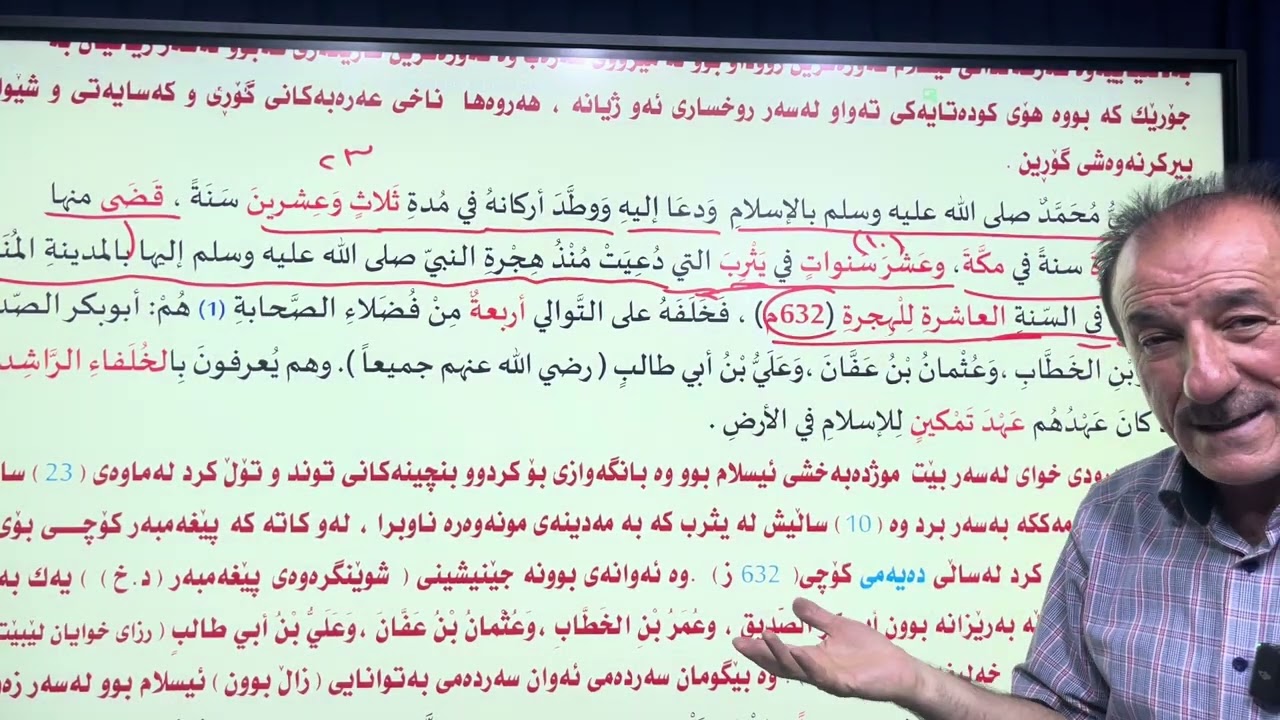 جۆرێك كه بووه هۆی كودەتایەكی تەواو لەسەر روخساری ئەو ژیانه ، هەروەها ناخی عەرەبەكانی گۆڕی و كەسایەتی و
بیركرنەوەشی گۆڕین .
٢٣
مُحَمَّدٌ صلى الله عليه وسلم بالإسلامِ وَدعَا إليهِ وَوطَّدَ أركانهُ في مُدةِ ثَلاثٍ وَعِشرينَ سَنَةً ، قَضَى منها
سنةً في مكَّةَ، وعَشْرَ سَنواتٍ في يَثْرِبَ التي دُعِيَتْ مُنْذُ هِجْرةِ النبيّ صلى الله عليه وسلم إليها بالمدينةِ
(١٠)
في السّنةِ العاشرةِ لِلْهِجرةِ (632م) ، فَخَلَفَهُ على التَّوالي أربعةٌ مِنْ فُضَلاءِ الصَّحابةِ (1) هُمْ: أبوبكر
بْنِ الخَطَّابِ ،وَعُثْمانُ بْنُ عَفَّانَ ،وَعَلَيُّ بْنُ أبي طالبٍ ( رضي الله عنهم جميعاً ). وهم يُعرفونَ بِالخُلَفاءِ الرَّاشِد
كانَ عَهْدُهُم عَهْدَ تَمْكينٍ لِلإسلامِ في الأرضِ .
خوای لەسەر بێت موژدەبەخشی ئیسلام بوو وه بانگەوازی بۆ كردوو بنچینەكانی توند و تۆڵ كرد لەماوەی ( 23 )
مەككه بەسەر برد وه ( 10 ) ساڵیش له یثرب كه به مەدینەی مونەوەره ناوبرا ، لەو كاته كه پێغەمبەر كۆچـــی بۆی
كرد لەساڵی دەیەمی كۆچی( 632 ز) .وه ئەوانەی بوونه جێنیشینی ( شوێنگرەوەی پێغەمبەر ( د.خ ) ) یەك به
بەرێزانه بوون الصّدیق ، وعُمَرُ بْنُ الخَطَّابِ ،وَعُثْمانُ بْنُ عَفَّانَ ،وَعَلَيُّ بْنُ أبي طالبٍ ( رزای خوایان لێبێت
وه بێگومان سەردەمی ئەوان سەردەمی بەتوانایی ( زاڵ بوون ) ئیسلام بوو لەسەر